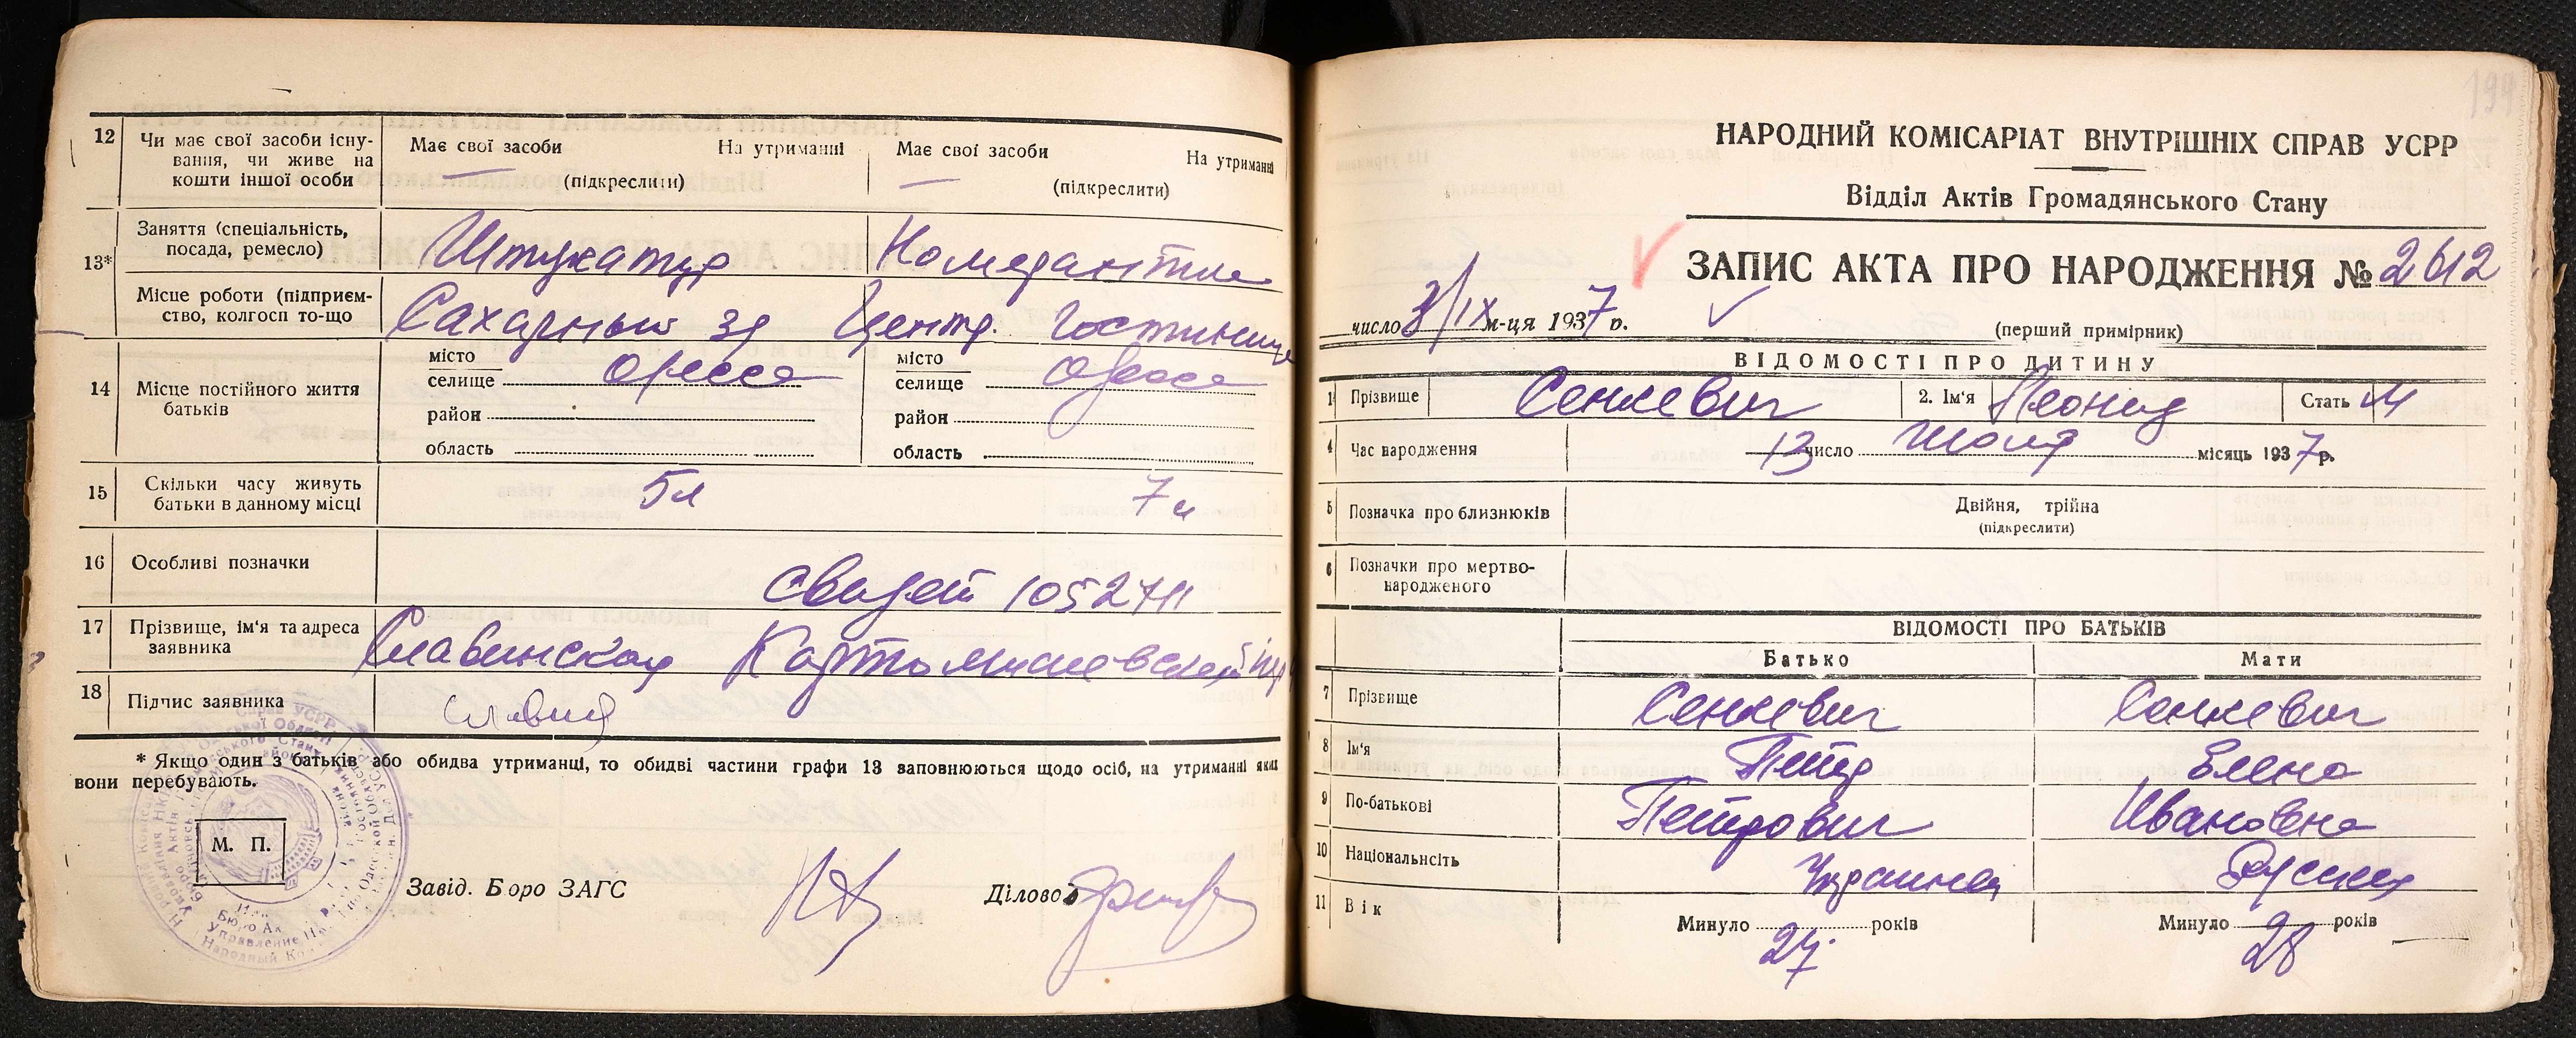 12
Чи має свої засоби існу-
вання, чи живе на
кошти іншої особи
Має свої засоби На утриманні
(підкреслити)
Має свої засоби На утриманні
(підкреслити)
13*
Заняття (спеціальність,
посада, ремесло)
Штукатур
Місце роботи (підприєм-
ство, колгосп то-що
Сахарный зд Центр. Гостиница
14
Місце постійного життя
батьків
місто
селище Одесса
район
область
місто
селище Одесса
район
область
15
Скільки часу живуть
батьки в данному місці
5л
7л
16
Особливі позначки
Свидет 1052711
17
Прізвище, ім'я та адреса
заявника
Славинская
18
Підпис заявника
* Якщо один з батьків або обидва утриманці, то обидві частини графи 13 заповнюються щодо осіб, на утриманні яких
вони перебувають.
М. П.
Завід. Бюро ЗАГС
Діловод
199
НАРОДНИЙ КОМІСАРІАТ ВНУТРІШНІХ СПРАВ УСРР
Відділ Актів Громадянського Стану
ЗАПИС АКТА ПРО НАРОДЖЕННЯ № 2612
число 3/IX м-ця 1937 р.
(перший примірник)
ВІДОМОСТІ ПРО ДИТИНУ
1 Прізвище Сенкевич 2. Ім'я Леонид Стать М
4 Час народження 13 число Июля місяць 1937 р.
5 Позначка про близнюків Двійня, трійна
(підкреслити)
6 Позначки про мертво-
народженого
ВІДОМОСТІ ПРО БАТЬКІВ
Батько Мати
7 Прізвище Сенкевич Сенкевич
8 Ім'я Петр Елена
9 По-батькові Петрович Ивановна
10 Національність Украинец Русская
11 Вік Минуло 27 років Минуло 28 років